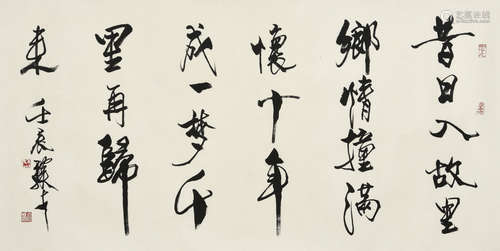 昔日入故里
鄉情撞滿
懷十年
成一梦千
里再歸
来 壬辰